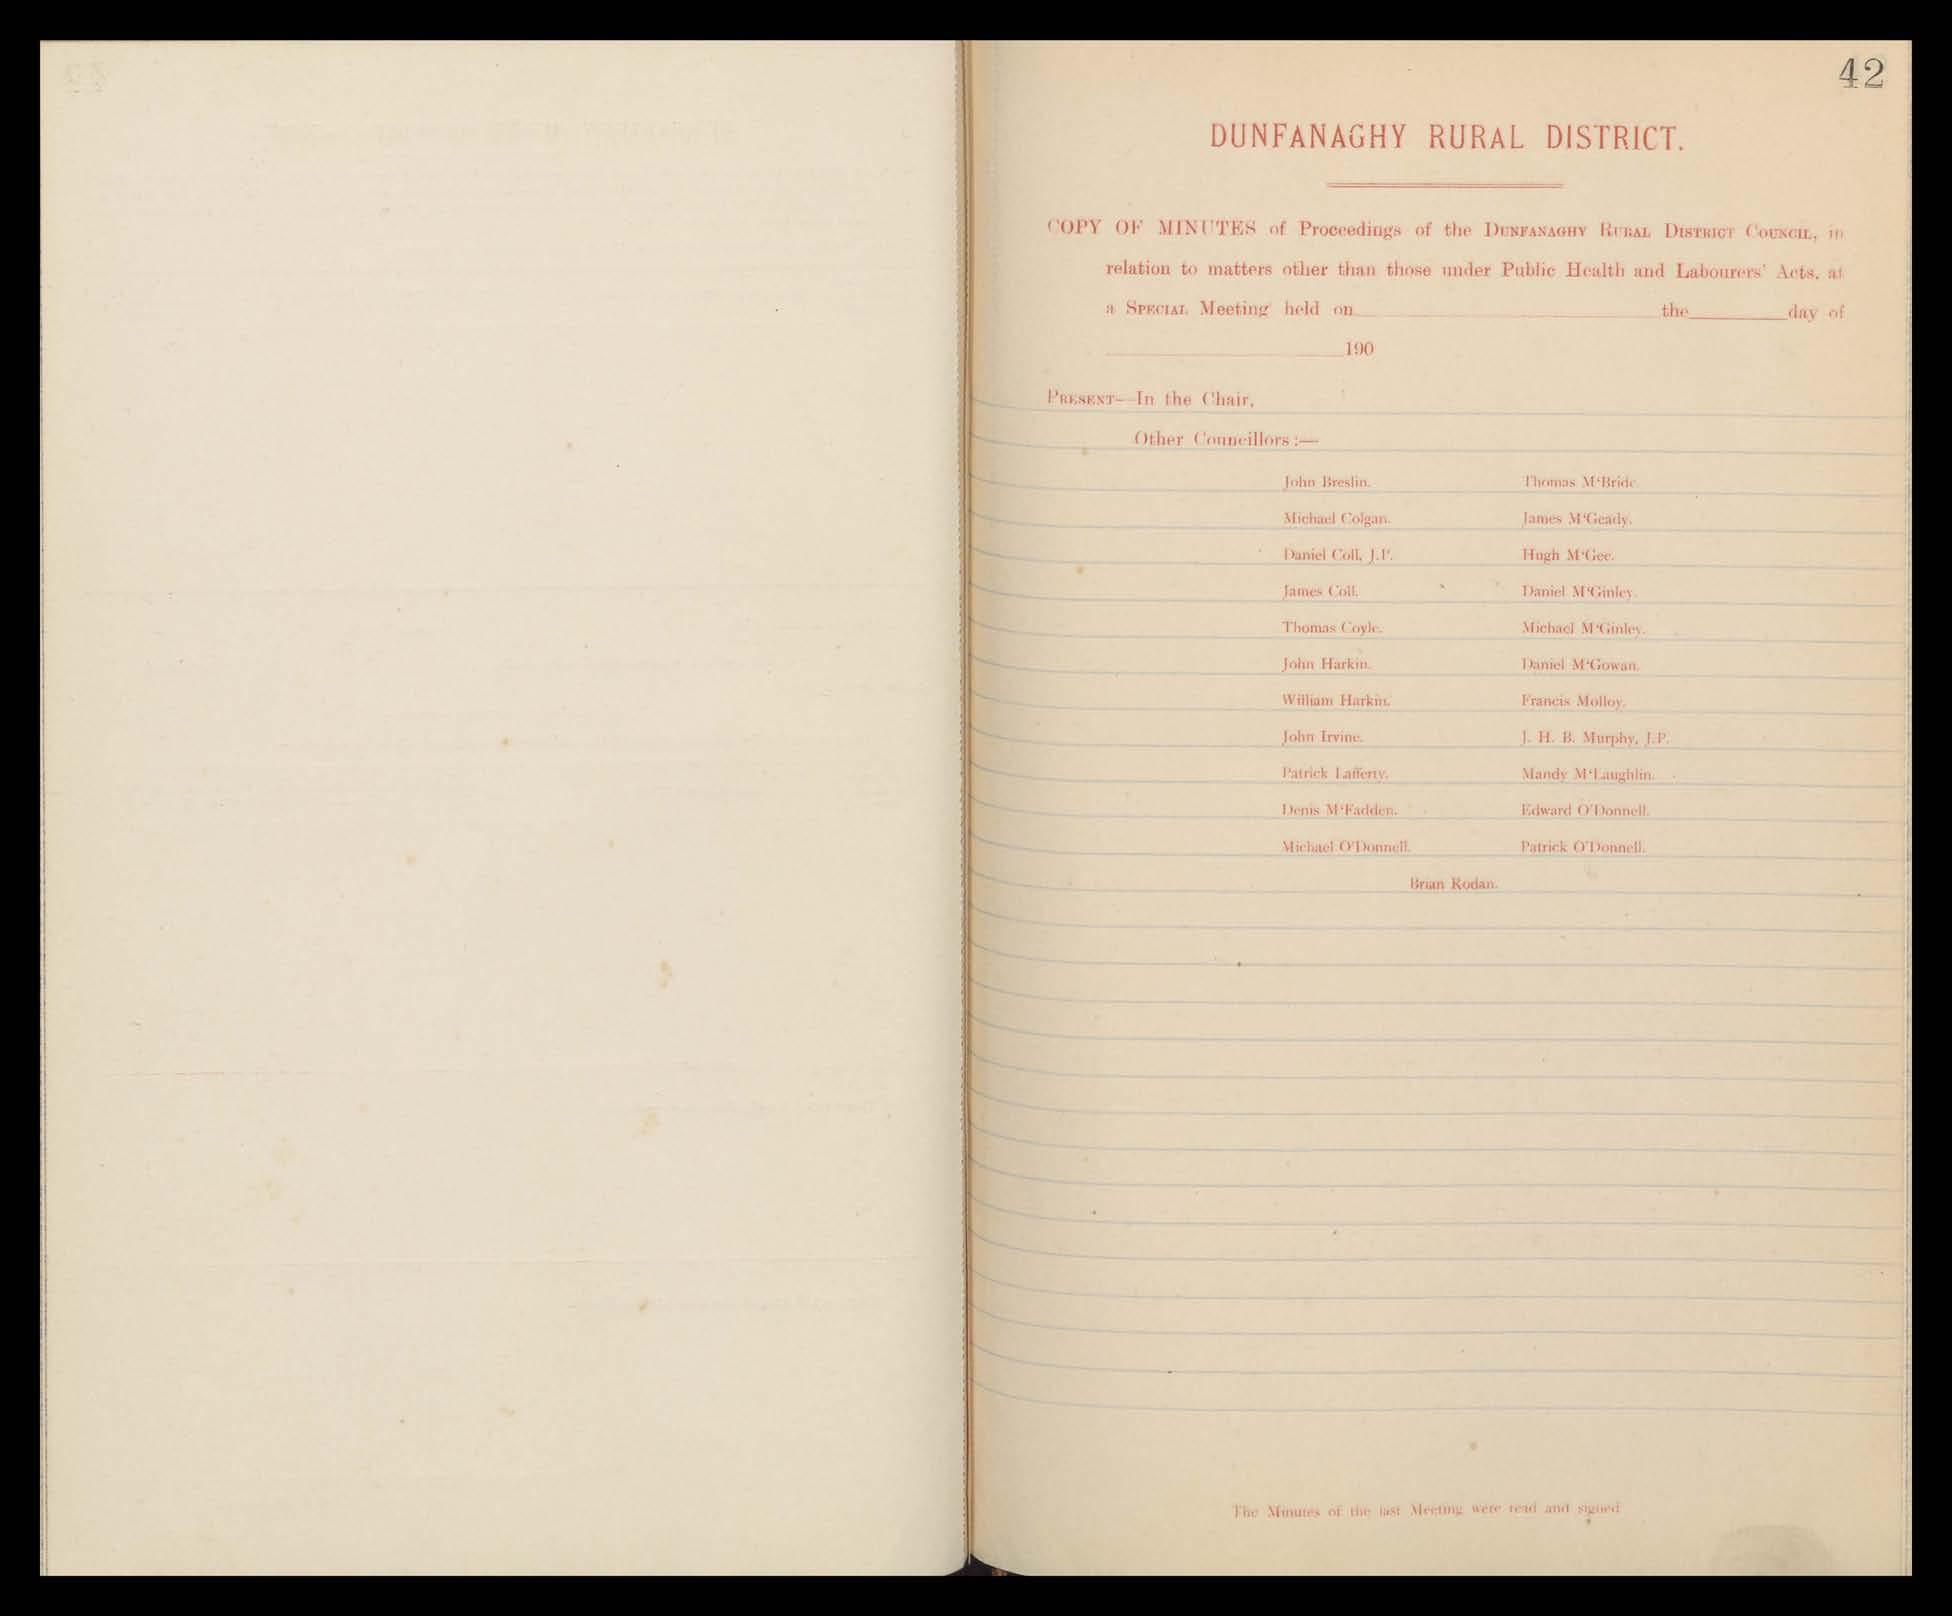 42
DUNFANAGHY RURAL DISTRICT.
COPY OF MINUTES of Proceedings of the DUNFANAGHY RURAL DISTRICT COUNCIL, in
relation to matters other than those under Public Health and Labourers' Acts, at
a SPECIAL Meeting held on the day of
190
PRESENT—In the Chair,
Other Councillors:—
John Breslin. Thomas M'Bride
Michael Colgan. James M'Geady.
Daniel Coll, J.P. Hugh M'Gee.
James Coll. Daniel M'Ginley.
Thomas Coyle. Michael M'Ginley.
John Harkin. Daniel M'Gowan.
William Harkin. Francis Molloy.
John Irvine. J. H. B. Murphy, J.P.
Patrick Lafferty. Mandy M'Laughlin.
Denis M'Fadden. Edward O'Donnell.
Michael O'Donnell. Patrick O'Donnell.
Brian Rodan.
The Minutes of the last Meeting were read and signed